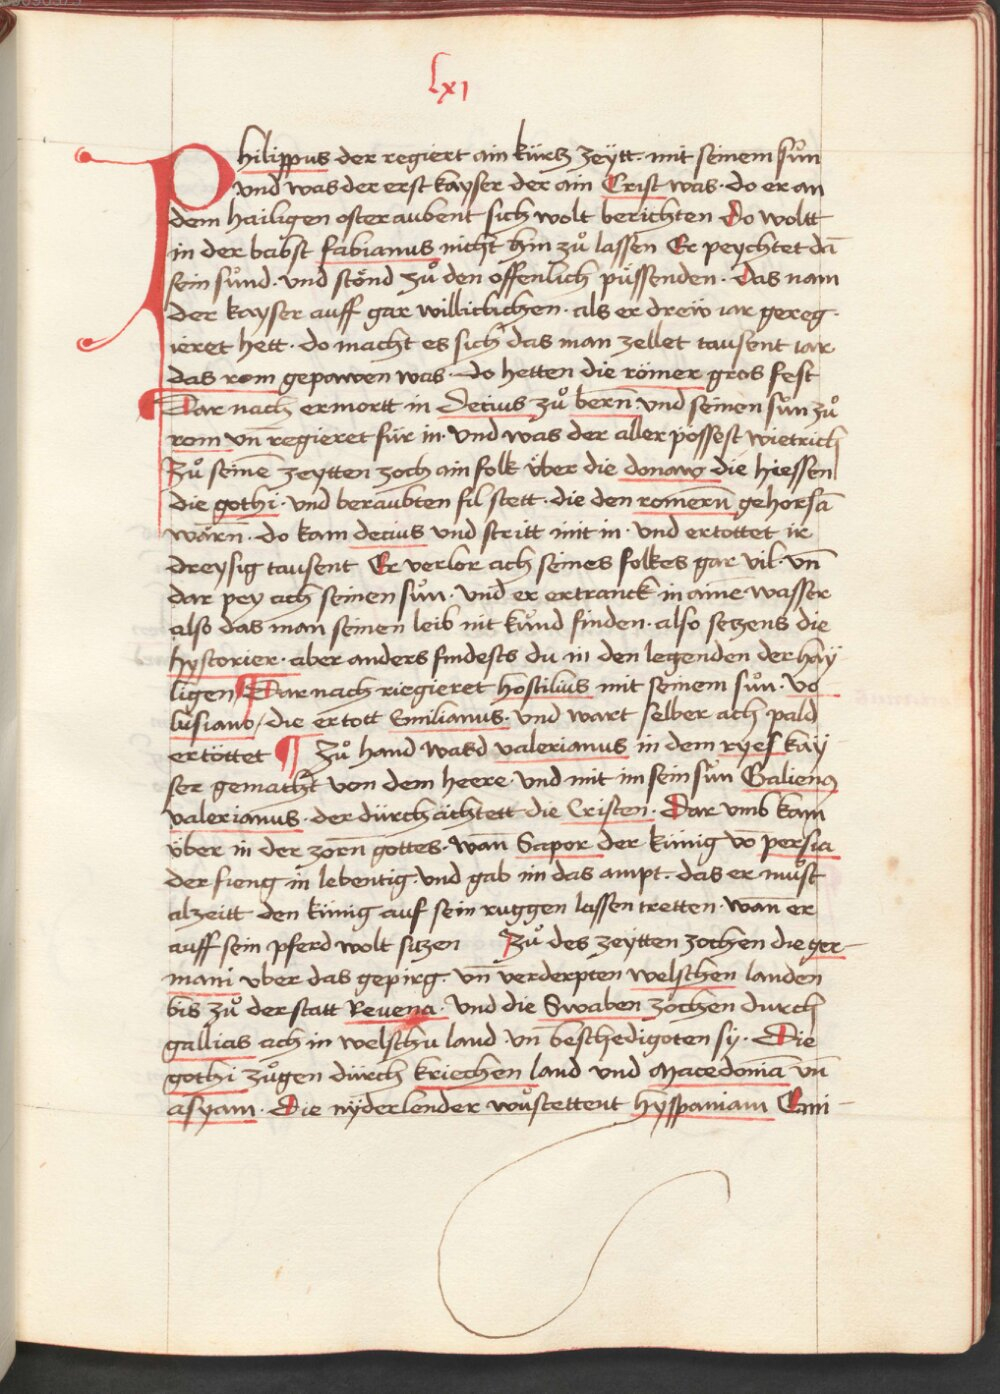 lxi
Philippus der regiert ain kürtz zeytt · mit seinem sůn
und was der erst kayser der ain Crist was · do er an
dem hailigen oster aubent sich wolt berichten Do woltt
in der babst fabianus nicht hin zů lassen Er peychtet dā
sein sůnd · und stönd zů den offenlich püssenden · Das nam
der kayser auff gar williclichen · als er dreẅ iar gereg·
ieret hett · do macht es sich das man zellet tausent iar
das rom gepawen was · do hetten die römer gros fest
Dar nach ermortt in Decius zů bern̄ · und seinen sůn zů
rom vn̄ regieret für in · und was der aller possest wietrich
Zů seinē zeytten zoch ain folk über die donaw die hiessen
die gothi · und beraubten fil stett · die den romern̄ gehorsā
wärn̄ · do kam decius und stritt mit in · und ertottet ir
dreysig tausent Er verlor ach seines folkes gar vil · vn̄
dar pey ach seinen sůn · und er ertranck in ainē wasser
also das man seinen leib nit kůnd finden · also setzens die
hystorier · aber anders findests du in den legenden der haÿ
ligen ¶ Dar nach riegieret hostilius mit seinem sůn · vo
lusiano / die ertott Emilianus · und wart selber ach pald
ertöttet ¶ Zů hand ward valerianus in dem ryes kaÿ
ser gemacht von dem heere · und mit im sein sůn Galienus
valerianus · der dürchächtett die Cristen · Dar vmb kam
über in der zorn gottes · wan̄ Sapor der künig vō persia
der fieng in lebentig · und gab im das ampt · das er můst
alzeitt den künig auf sein ruggen lassen tretten · wan̄ er
auff sein pferd wolt sitzen Zů des zeÿtten zochen die ger–
mani vber das gepirg · vn̄ verderpten welschen landen
bis zů der statt Revena · und die Swaben zochen durch
gallias ach in welschu land · vn̄ beschedigoten sy · Die
gothi zůgen dürch kriechen land und Macedoniā vn̄
asyam · Die nÿderlender wůstettent hÿspaniam Emi–